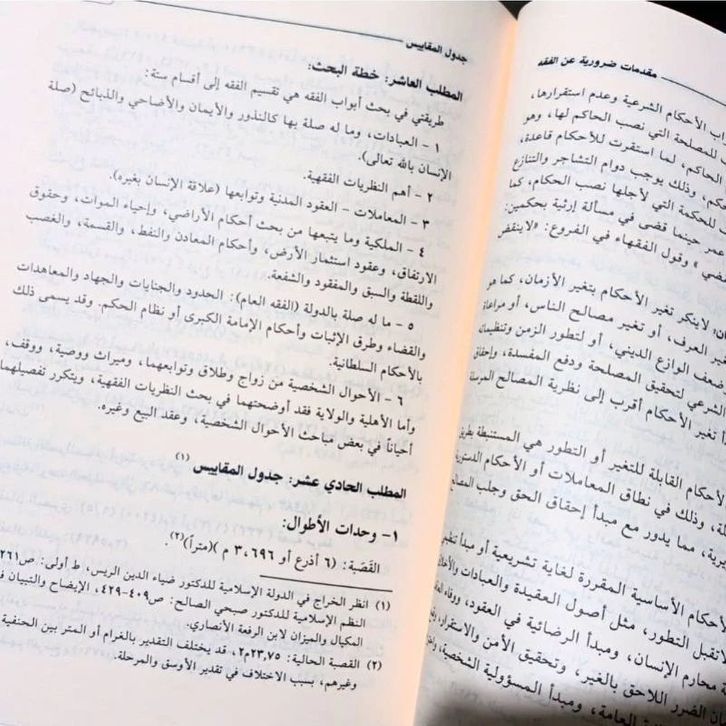 مقدمات ضرورية عن الفقه
اب الأحكام الشرعية وعدم استقرارها،
للمصلحة التي نصب الحاكم لها، وهو
الحاكم، لما استقرت للأحكام قاعدة،
وذلك يوجب دوام التشاجر والتنازع
للحكمة التي لأجلها نصب الحكام، كما
عمر حينما قضى في مسألة إرثية بحكمين:
وقول الفقهاء في الفروع: «لا ينقض
لا ينكر تغير الأحكام بتغير الأزمان، كما هو
العرف، أو تغير مصالح الناس، أو مراعاة
الوازع الديني، أو لتطور الزمن وتنظيماته
الشرعي لتحقيق المصلحة ودفع المفسدة، وإحقاق
تغير الأحكام أقرب إلى نظرية المصالح المرسلة
الأحكام القابلة للتغير أو التطور هي المستنبطة بطريق
وذلك في نطاق المعاملات أو الأحكام
مما يدور مع مبدأ إحقاق الحق وجلب
الأحكام الأساسية المقررة لغاية تشريعية أو مبدأ
لا تقبل التطور، مثل أصول العقيدة والعبادات
محارم الإنسان، ومبدأ الرضائية في العقود،
الضرر اللاحق بالغير، وتحقيق الأمن والاستقرار،
العامة، ومبدأ المسؤولية الشخصية،
جدول المقاييس
المطلب العاشر: خطة البحث:
طريقتي في بحث أبواب الفقه هي تقسيم الفقه إلى أقسام ستة:
١ - العبادات، وما له صلة بها كالنذور والأيمان والأضاحي والذبائح (صلة
الإنسان بالله تعالى).
٢ - أهم النظريات الفقهية.
٣ - المعاملات - العقود المدنية وتوابعها (علاقة الإنسان بغيره).
٤ - الملكية وما يتبعها من بحث أحكام الأراضي، وإحياء الموات، وحقوق
الارتفاق، وعقود استثمار الأرض، وأحكام المعادن والنفط، والقسمة، والغصب
واللقطة والسبق والمفقود والشفعة.
٥ - ما له صلة بالدولة (الفقه العام): الحدود والجنايات والجهاد والمعاهدات
والقضاء وطرق الإثبات وأحكام الإمامة الكبرى أو نظام الحكم. وقد يسمى ذلك
بالأحكام السلطانية.
٦ - الأحوال الشخصية من زواج وطلاق وتوابعهما، وميراث ووصية، ووقف،
وأما الأهلية والولاية فقد أوضحتهما في بحث النظريات الفقهية، ويتكرر تفصيلهما
أحياناً في بعض مباحث الأحوال الشخصية، وعقد البيع وغيره.
المطلب الحادي عشر: جدول المقاييس (١)
١- وحدات الأطوال:
القَصَبة: (٦ أذرع أو ٣,٦٩٦ م )(متراً)(٢).
(١) انظر الخراج في الدولة الإسلامية للدكتور ضياء الدين الريس، ط أولى: ص٢٦١
النظم الإسلامية للدكتور صبحي الصالح: ص٤٠٩-٤٢٩، الإيضاح والتبيان في
المكيال والميزان لابن الرفعة الأنصاري.
(٢) القصبة الحالية: ٢٣,٧٥م٢، قد يختلف التقدير بالغرام أو المتر بين الحنفية
وغيرهم، بسبب الاختلاف في تقدير الأوسق والمرحلة.